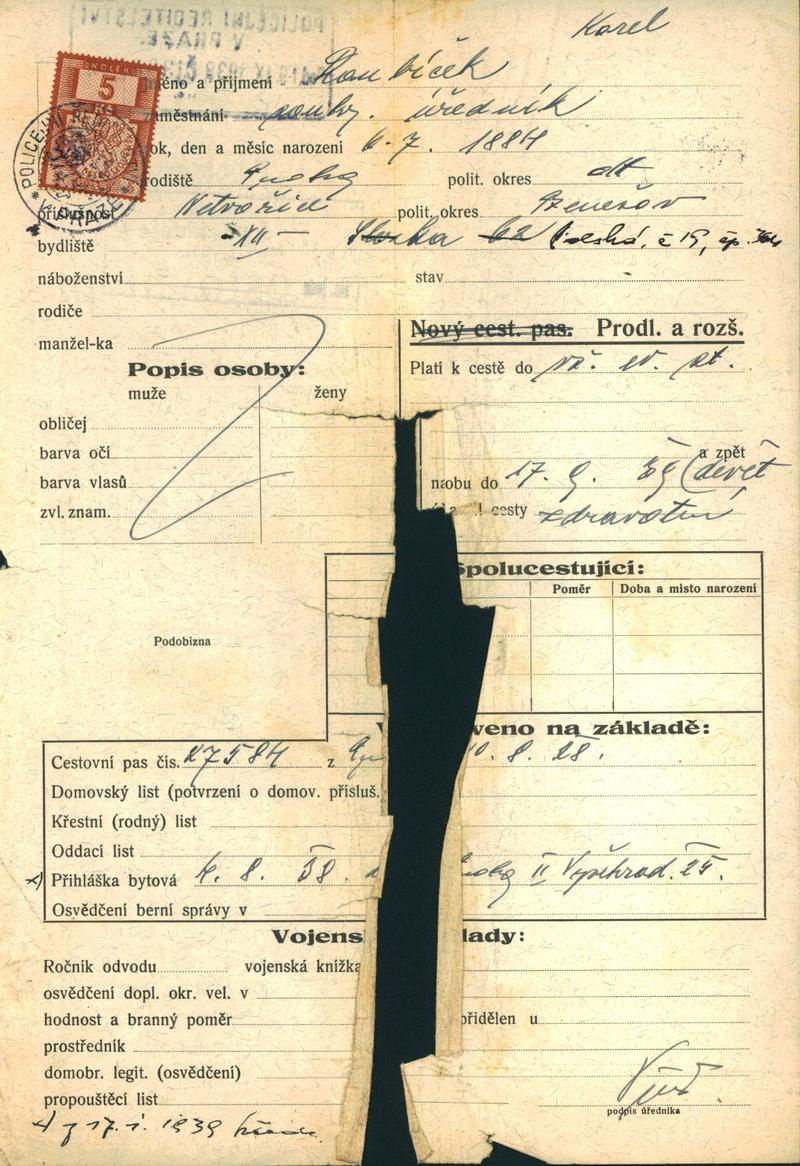 POLICEJNÍ ŘEDITELSTVÍ
V PRAZE
Karel
KOLEK
5
Kč
POLICEJNÍ ŘED
V PRAZE
jméno a příjmení Roubíček
zaměstnání soukr. úředník
rok, den a měsíc narození 6. 7. 1884
rodiště Praha polit. okres dt
příslušnost Netvořice polit. okres Benešov
bydliště XII - 62 19, čp.
náboženství stav
rodiče
manžel-ka
Nový cest. pas. Prodl. a rozš.
Popis osoby:
Platí k cestě do vš. ev. st.
muže ženy
obličej
a zpět
barva očí
na dobu do 17. 9. 39 (devět
barva vlasů
cesty zdravotní
zvl. znam.
Spolucestující:
Poměr Doba a místo narození
Podobizna
veno na základě:
Cestovní pas čís. 27584 z 10. 8. 28.
Domovský list (potvrzení o domov. přísluš.
Křestní (rodný) list
Oddací list
x) Přihláška bytová 4. 8. 38. II Vyšehrad. 25.
Osvědčení berní správy v
Vojens lady:
Ročník odvodu vojenská knížka
osvědčení dopl. okr. vel. v
hodnost a branný poměr přidělen u
prostředník
domobr. legit. (osvědčení)
propouštěcí list
podpis úředníka
x) z 17. 1. 1939